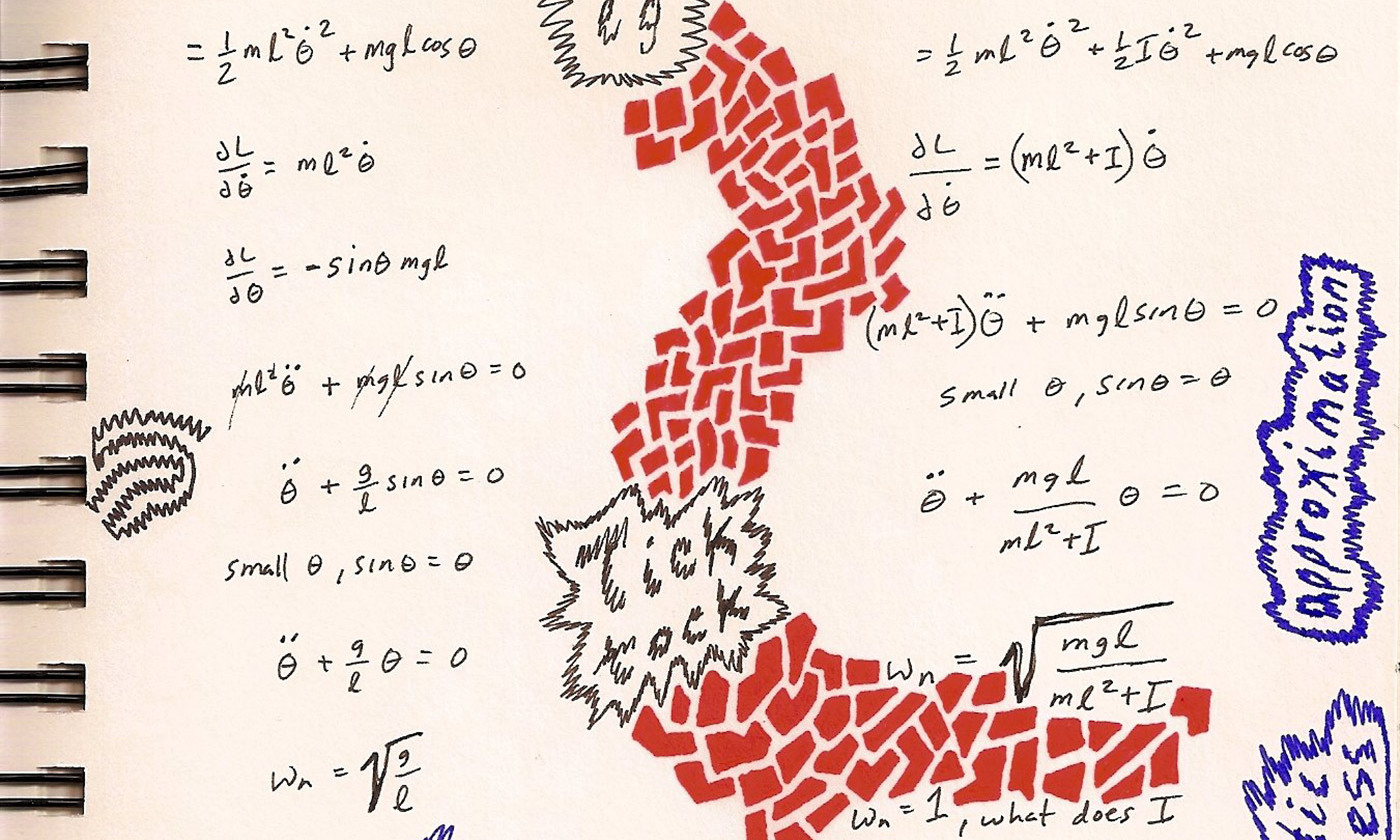 = 1/2 ml² θ̇² + mgl cos θ
∂L/∂θ̇ = ml² θ̇
∂L/∂θ = -sinθ mgl
ml² θ̈ + mgl sin θ = 0
θ̈ + g/l sin θ = 0
small θ, sin θ = θ
θ̈ + g/l θ = 0
ωn = √(g/l)
= 1/2 ml² θ̇² + 1/2 I θ̇² + mgl cos θ
∂L/∂θ̇ = (ml² + I) θ̇
(ml² + I) θ̈ + mgl sin θ = 0
small θ, sin θ = θ
θ̈ + mgl/(ml² + I) θ = 0
ωn = √(mgl/(ml² + I))
ωn = 1, what does I
approximation